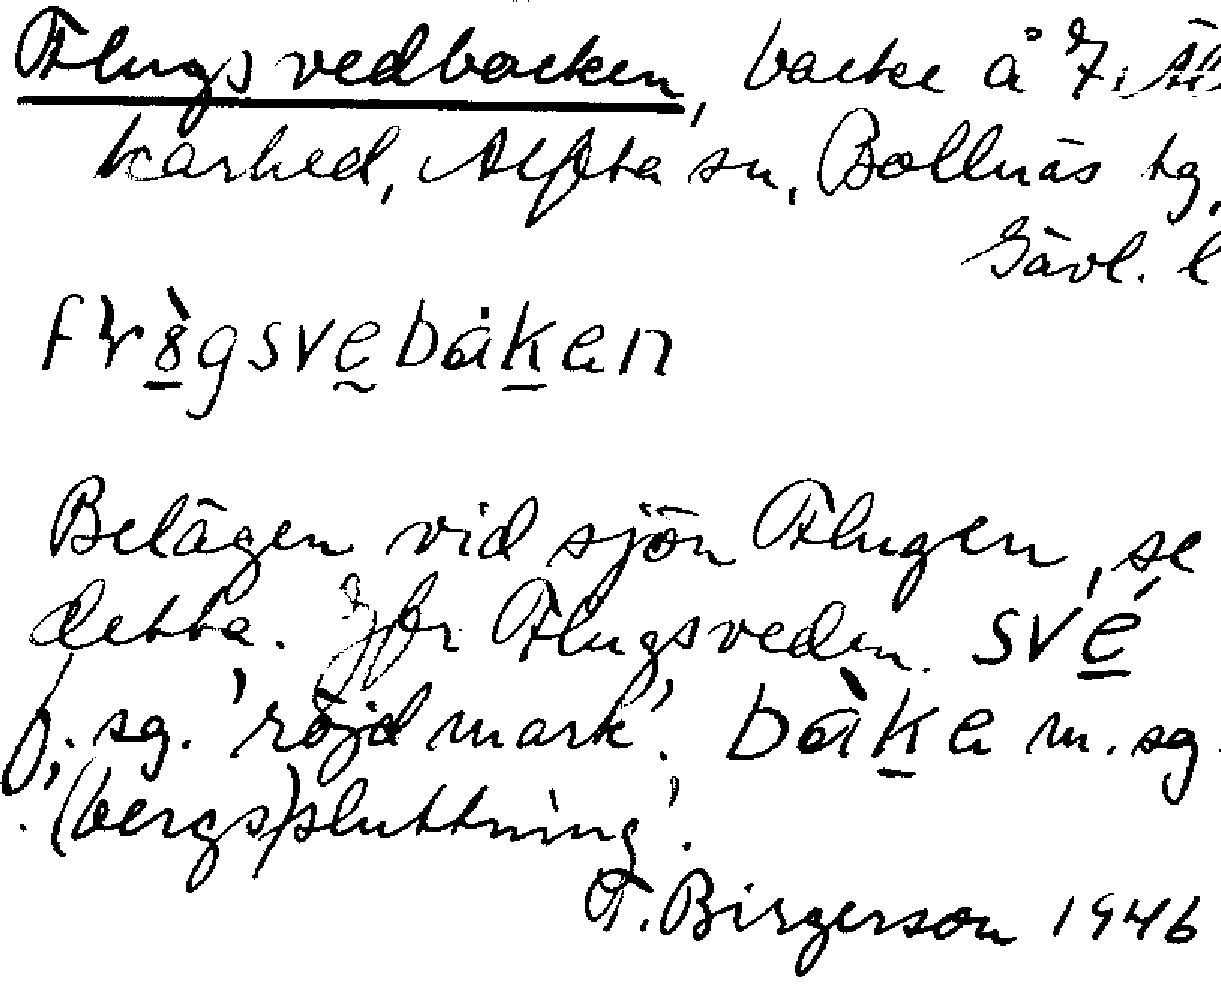 Flugsvedbacken, backe å 7,
karhed, Alfta sn, Bollnäs tg,
Gävl. l
Belägen vid sjön Flugen, se
detta. Jfr Flugsveden. své
f. sg. 'röjd mark'. bàka m. sg.
'(bergs)sluttning'.
T. Birgerson 1946